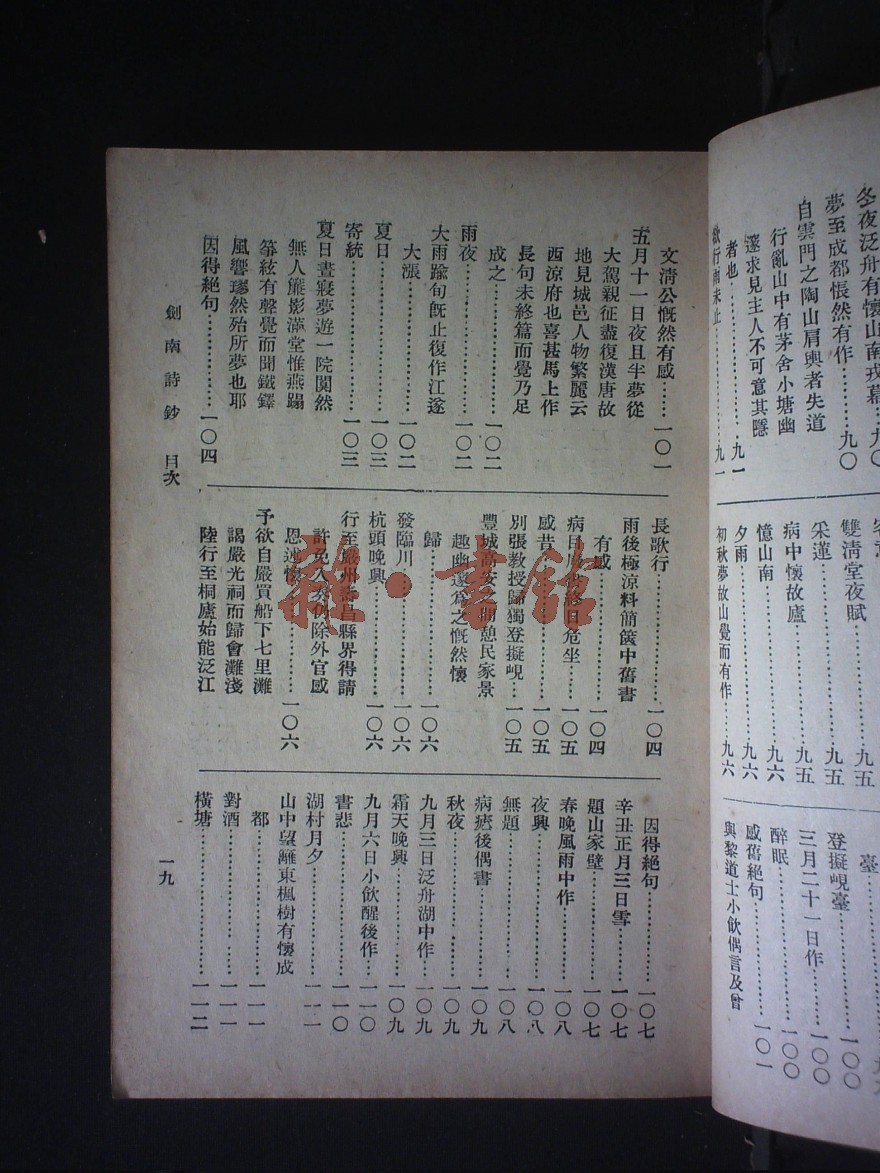 冬夜泛舟有懷山南戎幕…九〇
夢至成都悵然有作………九〇
自雲門之陶山肩輿者失道
行亂山中有茅舍小塘幽
邃求見主人不可意其隱
者也………………九一
欲行雨未止……………九一
雙清堂夜賦……………九五
采蓮……………………九五
病中懷故廬……………九五
憶山南…………………九六
夕雨……………………九六
初秋夢故山覺而有作……九六
臺………………………九九
登擬峴臺………………一〇〇
三月二十一日作………一〇〇
醉眠……………………一〇〇
感舊絕句………………一〇一
與黎道士小飲偶言及曾
文清公慨然有感……一〇一
五月十一日夜且半夢從
大駕親征盡復漢唐故
地見城邑人物繁麗云
西涼府也喜甚馬上作
長句未終篇而覺乃足
成之………………一〇二
雨夜……………………一〇二
大雨踰旬既止復作江遂
大漲………………一〇二
夏日……………………一〇三
寄統……………………一〇三
夏日晝寢夢遊一院闃然
無人簾影滿堂惟燕蹋
箏絃有聲覺而聞鐵鐸
風響璆然殆所夢也耶
因得絕句……………一〇四
長歌行…………………一〇四
雨後極涼料簡篋中舊書
有感………………一〇四
病目……終日危坐……一〇五
感昔……………………一〇五
別張教授歸獨登擬峴……一〇五
豐城高安之間憩民家景
趣幽邃為之慨然懷
歸…………………一〇六
發臨川…………………一〇六
杭頭晚興………………一〇六
行至嚴州壽昌縣界得請
許免入奏仍除外官感
恩述懷……………一〇六
予欲自嚴買船下七里灘
謁嚴光祠而歸會灘淺
陸行至桐廬始能泛江
因得絕句……………一〇七
辛丑正月三日雪………一〇七
題山家壁………………一〇七
春晚風雨中作…………一〇八
夜興……………………一〇八
無題……………………一〇八
病瘧後偶書……………一〇九
秋夜……………………一〇九
九月三日泛舟湖中作……一〇九
霜天晚興………………一〇九
九月六日小飲醒後作……一一〇
書悲……………………一一〇
湖村月夕………………一一一
山中望籬東楓樹有懷成
都…………………一一一
對酒……………………一一一
橫塘……………………一一二
劍南詩鈔　目次
一九
雜·書館